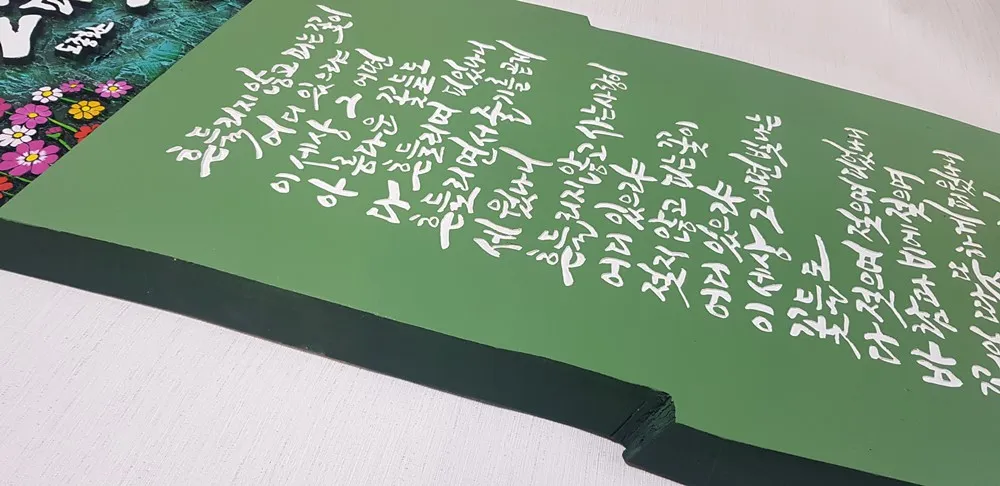 도종환
흔들리지 않고 피는 꽃이
어디 있으랴
이 세상 그 어떤
아름다운 꽃들도
다 흔들리며 피었나니
흔들리면서 줄기를 곧게
세웠나니
흔들리지 않고 가는 사랑이
어디 있으랴
젖지 않고 피는 꽃이
어디 있으랴
이 세상 그 어떤 빛나는
꽃들도
다 젖으며 젖으며 피었나니
바람과 비에 젖으며
꽃잎 따뜻하게 피웠나니